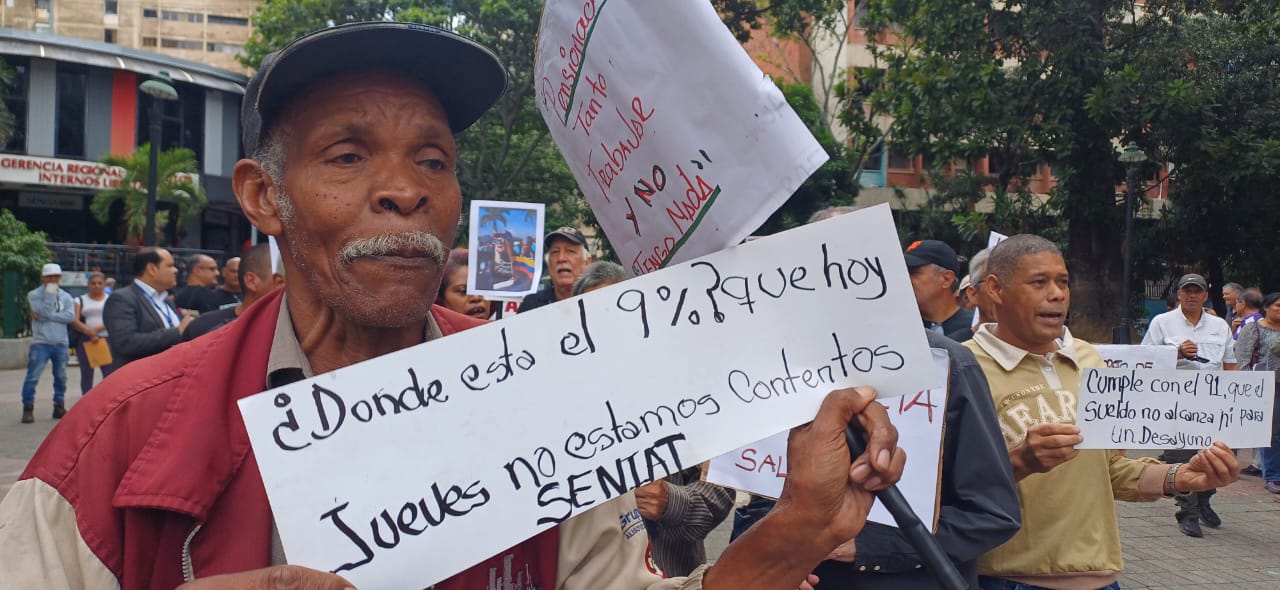 GERENCIA REGIONAL
INTERNOS LIB
Pensionad
Tanto
Trabajube
Y NO
Tengo Nada
¿Donde esta el 9%? que hoy
Jueves no estamos Contentos
SENIAT
SAL
Cumple con el 91, que el
Sueldo no alcanza ni para
un Desayuno